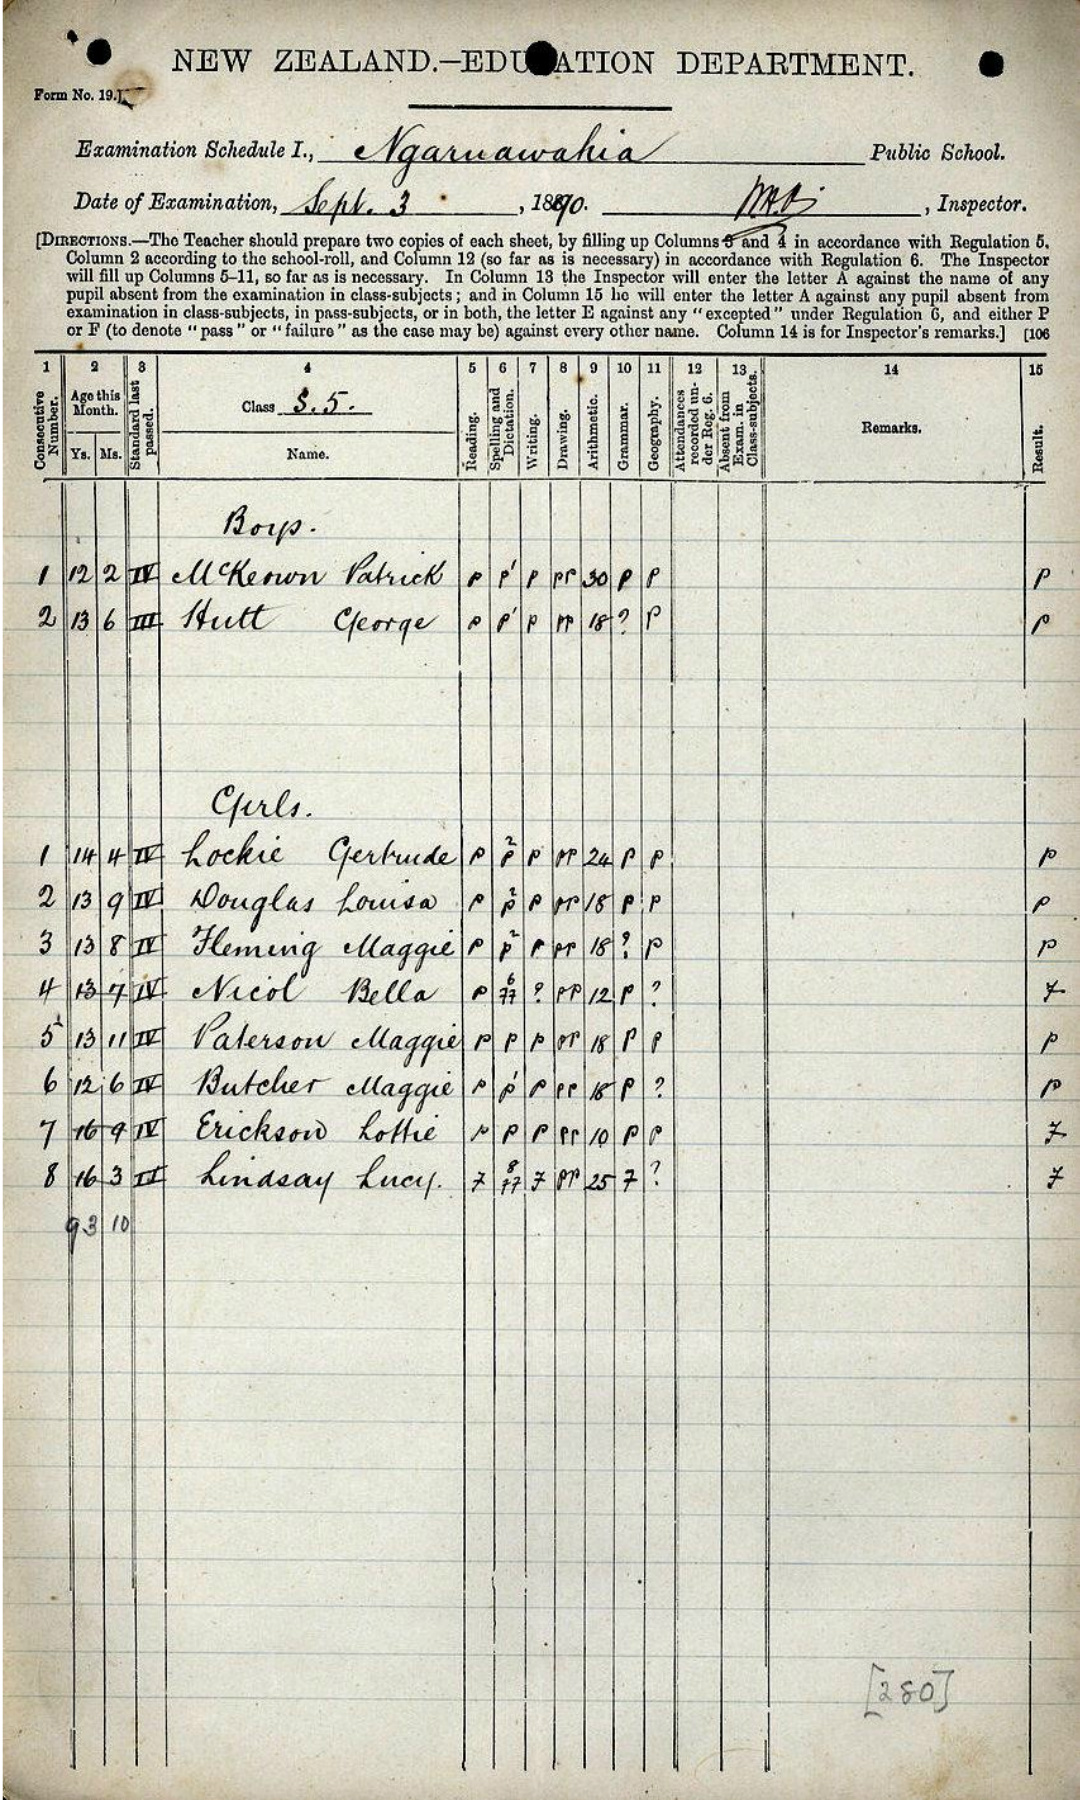 NEW ZEALAND.—EDUCATION DEPARTMENT.
Form No. 19.]
Examination Schedule I., Ngaruawahia Public School.
Date of Examination, Sept. 3, 1890. , Inspector.
[DIRECTIONS.—The Teacher should prepare two copies of each sheet, by filling up Columns 3 and 4 in accordance with Regulation 5,
Column 2 according to the school-roll, and Column 12 (so far as is necessary) in accordance with Regulation 6. The Inspector
will fill up Columns 5–11, so far as is necessary. In Column 13 the Inspector will enter the letter A against the name of any
pupil absent from the examination in class-subjects; and in Column 15 he will enter the letter A against any pupil absent from
examination in class-subjects, in pass-subjects, or in both, the letter E against any "excepted" under Regulation 6, and either P
or F (to denote "pass" or "failure" as the case may be) against every other name. Column 14 is for Inspector's remarks.] [106
1 2 3 4 5 6 7 8 9 10 11 12 13 14 15
Consecutive Number. Age this Month. Ys. Ms. Standard last passed. Class S.5. Name. Reading. Spelling and Dictation. Writing. Drawing. Arithmetic. Grammar. Geography. Attendances recorded under Reg. 6. Absent from Exam. in Class-subjects. Remarks. Result.
Boys.
1 12 2 IV McKeown Patrick P P' P PP 30 P P P
2 13 6 III Hutt George P P' P PP 18 ? P P
Girls.
1 14 4 IV Lockie Gertrude P P2 P PP 24 P P P
2 13 9 IV Douglas Louisa P P2 P PP 18 P P P
3 13 8 IV Fleming Maggie P P2 P PP 18 ? P P
4 13 7 IV Nicol Bella P 6 FF ? PP 12 P ? F
5 13 11 IV Paterson Maggie P P P PP 18 P P P
6 12 6 IV Butcher Maggie P P' P PP 18 P ? P
7 16 9 IV Erickson Lottie P P P PP 10 P P F
8 16 3 II Lindsay Lucy. F 8 FF F PP 25 F ? F
93 10
[280]